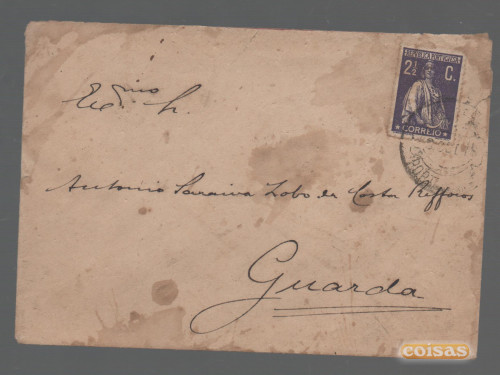 REPUBLICA PORTUGUESA
2½ C.
CORREIO
Exmo Sr.
Antonio Saraiva Lobo da Costa Refoios
Guarda
coisas